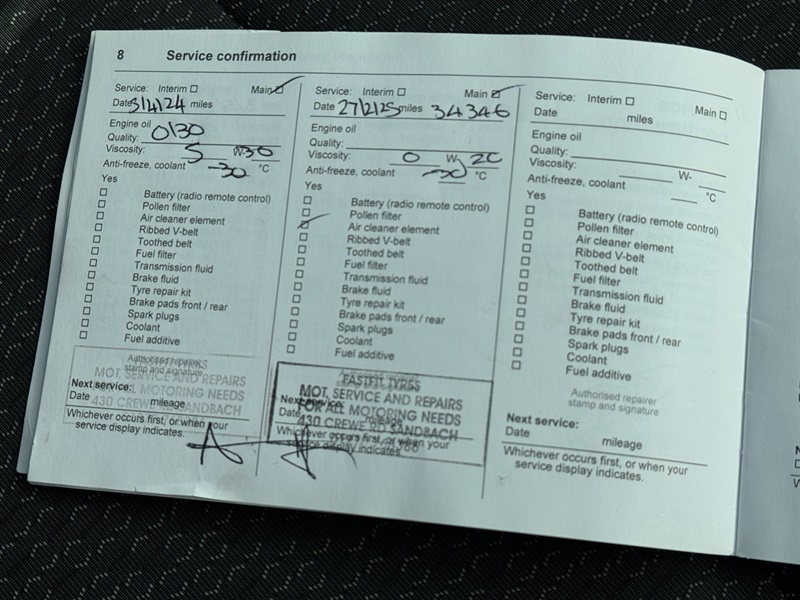 8 Service confirmation
Service: Interim Main
Date 3/4/24 miles
Engine oil
Quality: 0130
Viscosity: 5 W-30
Anti-freeze, coolant -30 °C
Yes
Battery (radio remote control)
Pollen filter
Air cleaner element
Ribbed V-belt
Toothed belt
Fuel filter
Transmission fluid
Brake fluid
Tyre repair kit
Brake pads front / rear
Spark plugs
Coolant
Fuel additive
Authorised repairer
stamp and signature
MOT, SERVICE AND REPAIRS
ALL MOTORING NEEDS
430 CREWE RD SANDBACH
Next service:
Date mileage
Whichever occurs first, or when your
service display indicates.
Service: Interim Main
Date 27/2/25 miles 34346
Engine oil
Quality:
Viscosity: 0 W- 20
Anti-freeze, coolant -30 °C
Yes
Battery (radio remote control)
Pollen filter
Air cleaner element
Ribbed V-belt
Toothed belt
Fuel filter
Transmission fluid
Brake fluid
Tyre repair kit
Brake pads front / rear
Spark plugs
Coolant
Fuel additive
Authorised
stamp and signature
FASTFIT TYRES
MOT, SERVICE AND REPAIRS
FOR ALL MOTORING NEEDS
430 CREWE RD SANDBACH
Next service:
Date mileage
Whichever occurs first, or when your
service display indicates.
Service: Interim Main
Date miles
Engine oil
Quality:
Viscosity: W-
Anti-freeze, coolant °C
Yes
Battery (radio remote control)
Pollen filter
Air cleaner element
Ribbed V-belt
Toothed belt
Fuel filter
Transmission fluid
Brake fluid
Tyre repair kit
Brake pads front / rear
Spark plugs
Coolant
Fuel additive
Authorised repairer
stamp and signature
Next service:
Date mileage
Whichever occurs first, or when your
service display indicates.